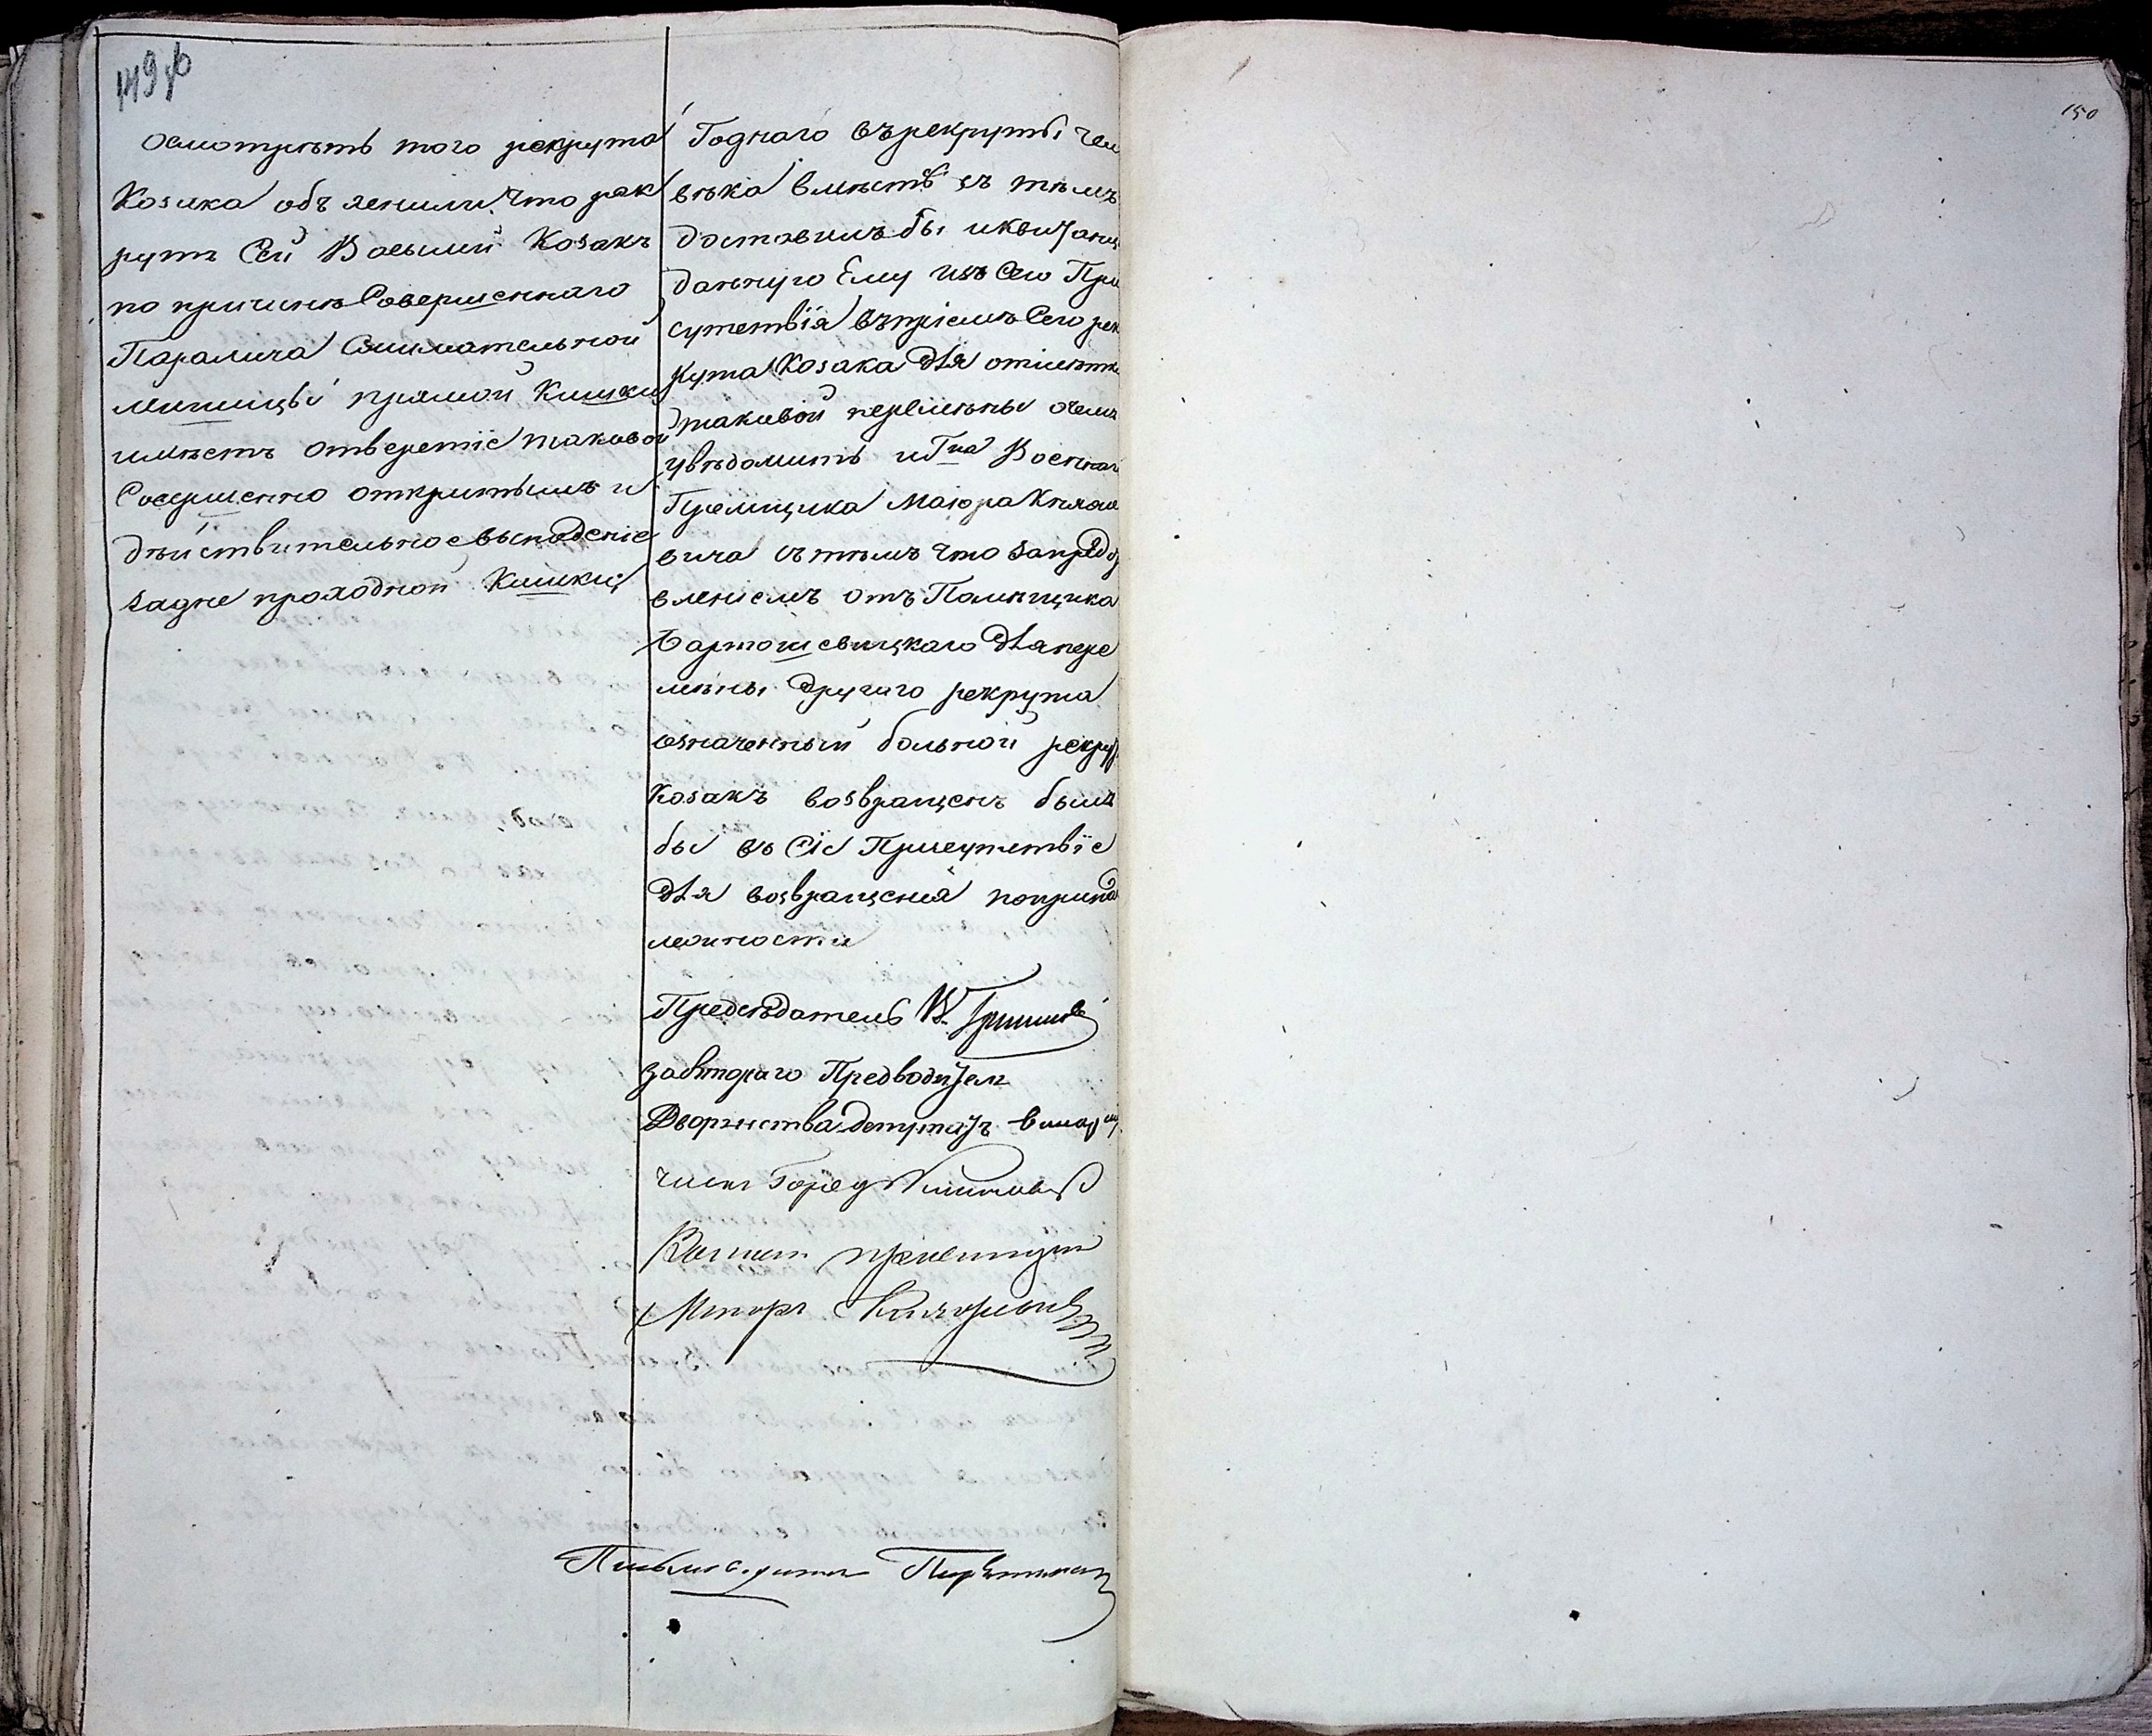 149об
осмотрѣть того рекрута
Козака объ явили что рек
рутъ Сей Васылий Козакъ
по причинѣ Совершеннаго
Паралича Сжимательной
мышицы прямой Кишки
имѣетъ отверстіе таковой
Совершенно открытымъ и
дѣйствительное выпаденіе
задне проходной Кишки
Годнаго въ рекруты чело
вѣка вмѣстѣ съ тѣмъ
доставилъ бы и квитанц
данную Ему изъ Сего При
сутствія въ пріемѣ Сего рек
рута Козака для отмѣтки
таковой перемѣны о чемъ
увѣдомить и Гна Военнаго
Пріемщика Маіора
вича съ тѣмъ что за предо
вленіемъ отъ Помѣщика
Бартошевицкаго для пере
мѣны другаго рекрута
означенный больной рекру
Козакъ возвращенъ былъ
бы въ Сіе Присутствіе
для возвращенія по принад
лежности
Предсѣдатель В.
за втораго Предводител
Дворянства депутатъ
членъ
Военный пріемщикъ
Маіоръ
Письмоводитель
150